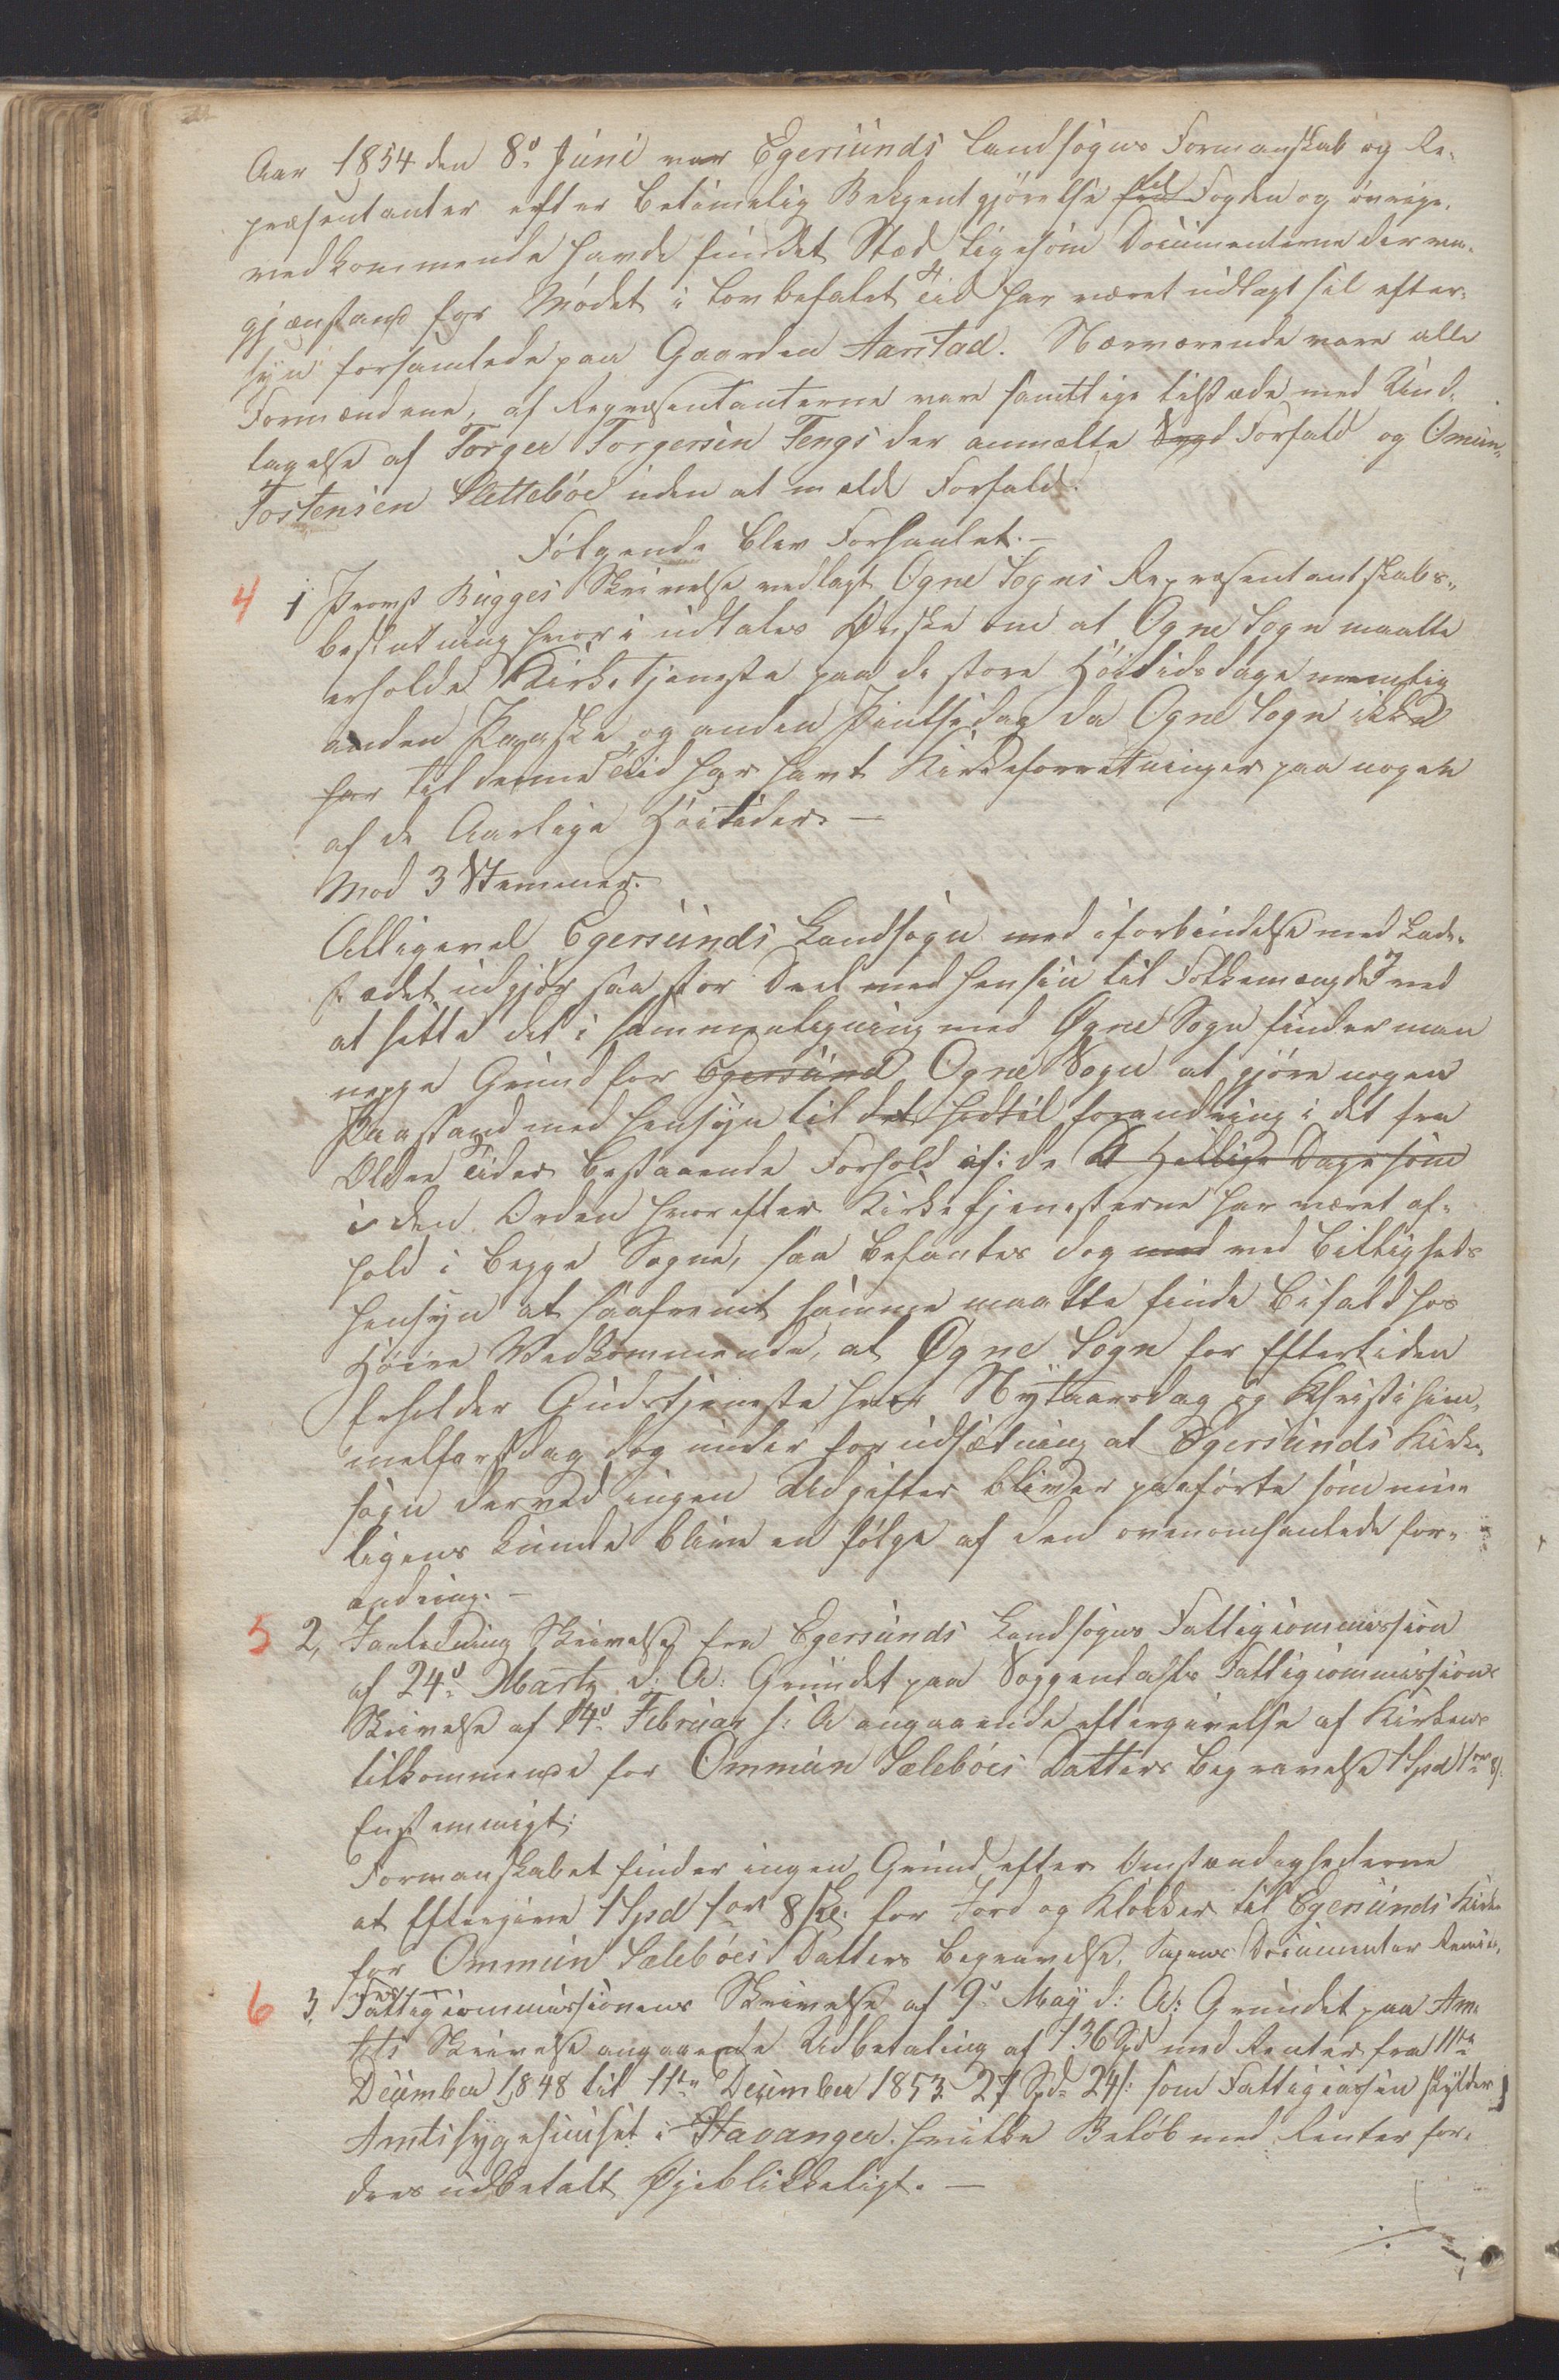 Aar 1854 den 8de Juni var Egersunds Landsogns Formanskab og Re-
præsentanter efter betimelig Bekjentgjørelse til Fogden og øvrige
vedkommende havde fundet Sted ligesom Documenterne der var
gjenstand for Mødet i Lovbefalet Tid har været udlagt til efter-
syn forsamlede paa Gaarden Aarstad. Nærværende vare alle
Formændene, af Repræsentanterne vare samtlige tilstæde med Und-
tagelse af Torger Torgersen Tengs der anmælte Forfald og Omun
Tostensen Slettebøe uden at melde Forfald.
Følgende blev Forhanlet. —
4 1 Provst Bugges Skrivelse vedlagt Ogne Sogns Repræsentantskabs-
beslutning hvori udtales Ønske om at Ogne Sogn maatte
erholde Kirketjeneste paa de store Høitidsdage nemlig
anden Paaske og anden Pintsedag da Ogne Sogn ikke
har til denne Tid har havt Kirkeforretninger paa nogen
af de Aarlige Høitider. —
Mod 3 Stemmer.
Alligevel Egersunds Landsogn med i forbindelse med Lade-
stædet udgjør saa stor Deel med hensin til Folkemængde ved
at sætte det i sammenligning med Ogne Sogn finder man
neppe Grund for Egersund Ogne Sogn at gjøre nogen
Paastand med hensyn til det hidtil forandring i det fra
Older Tider bestaaende Forhold if: de Hellige Dage som
i den Orden hvorefter Kirketjenesterne har været af-
hold i begge Sogne, saa befantes dog med ved Billigheds
hensyn at saafremt samme maatte finde bifald hos
Høiere Vedkommende, at Ogne Sogn for Eftertiden
beholder Gudstjeneste hver Nytaarsdag og Kristi him-
melfartsdag dog under forudsætning at Egersunds Kirke-
sogn derved ingen Udgifter bliver paaførte som mu-
ligens kunde blive en følge af den ovenomhanlede for-
andring. —
5 2, I anledning Skrivelse fra Egersunds Landsogns Fattigcommission
af 24de Martz d: A: Grundet paa Soggendals Fattigcommissions
Skrivelse af 14de Februar s: A angaaende eftergivelse af Kirkens
tilkommende for Ommun Sælebøes Datters begravelse 1 Spd 1 ort 8 s.
Enstemmigt:
Formanskabet finder ingen Grund efter Omstændighederne
at Eftergive 1 Spd 1 ort 8 sk: for Jord og Klokker til Egersunds Kirke
for Ommun Sælebøes Datters begravelse, Sagens Documenter
6 3. Fattigcommissionens Skrivelse af 9de May d: A: Grundet paa Am-
tets Skrivelse angaaende Udbetaling af 136 Spd med Renter fra 11te
December 1848 til 11te December 1853 27 Spd 24 s: som Fattigcassen skylder
Amtssygehuuset i Stavanger. hvilke Beløb med Renter for-
dres udbetalt Øjeblikkeligt. —